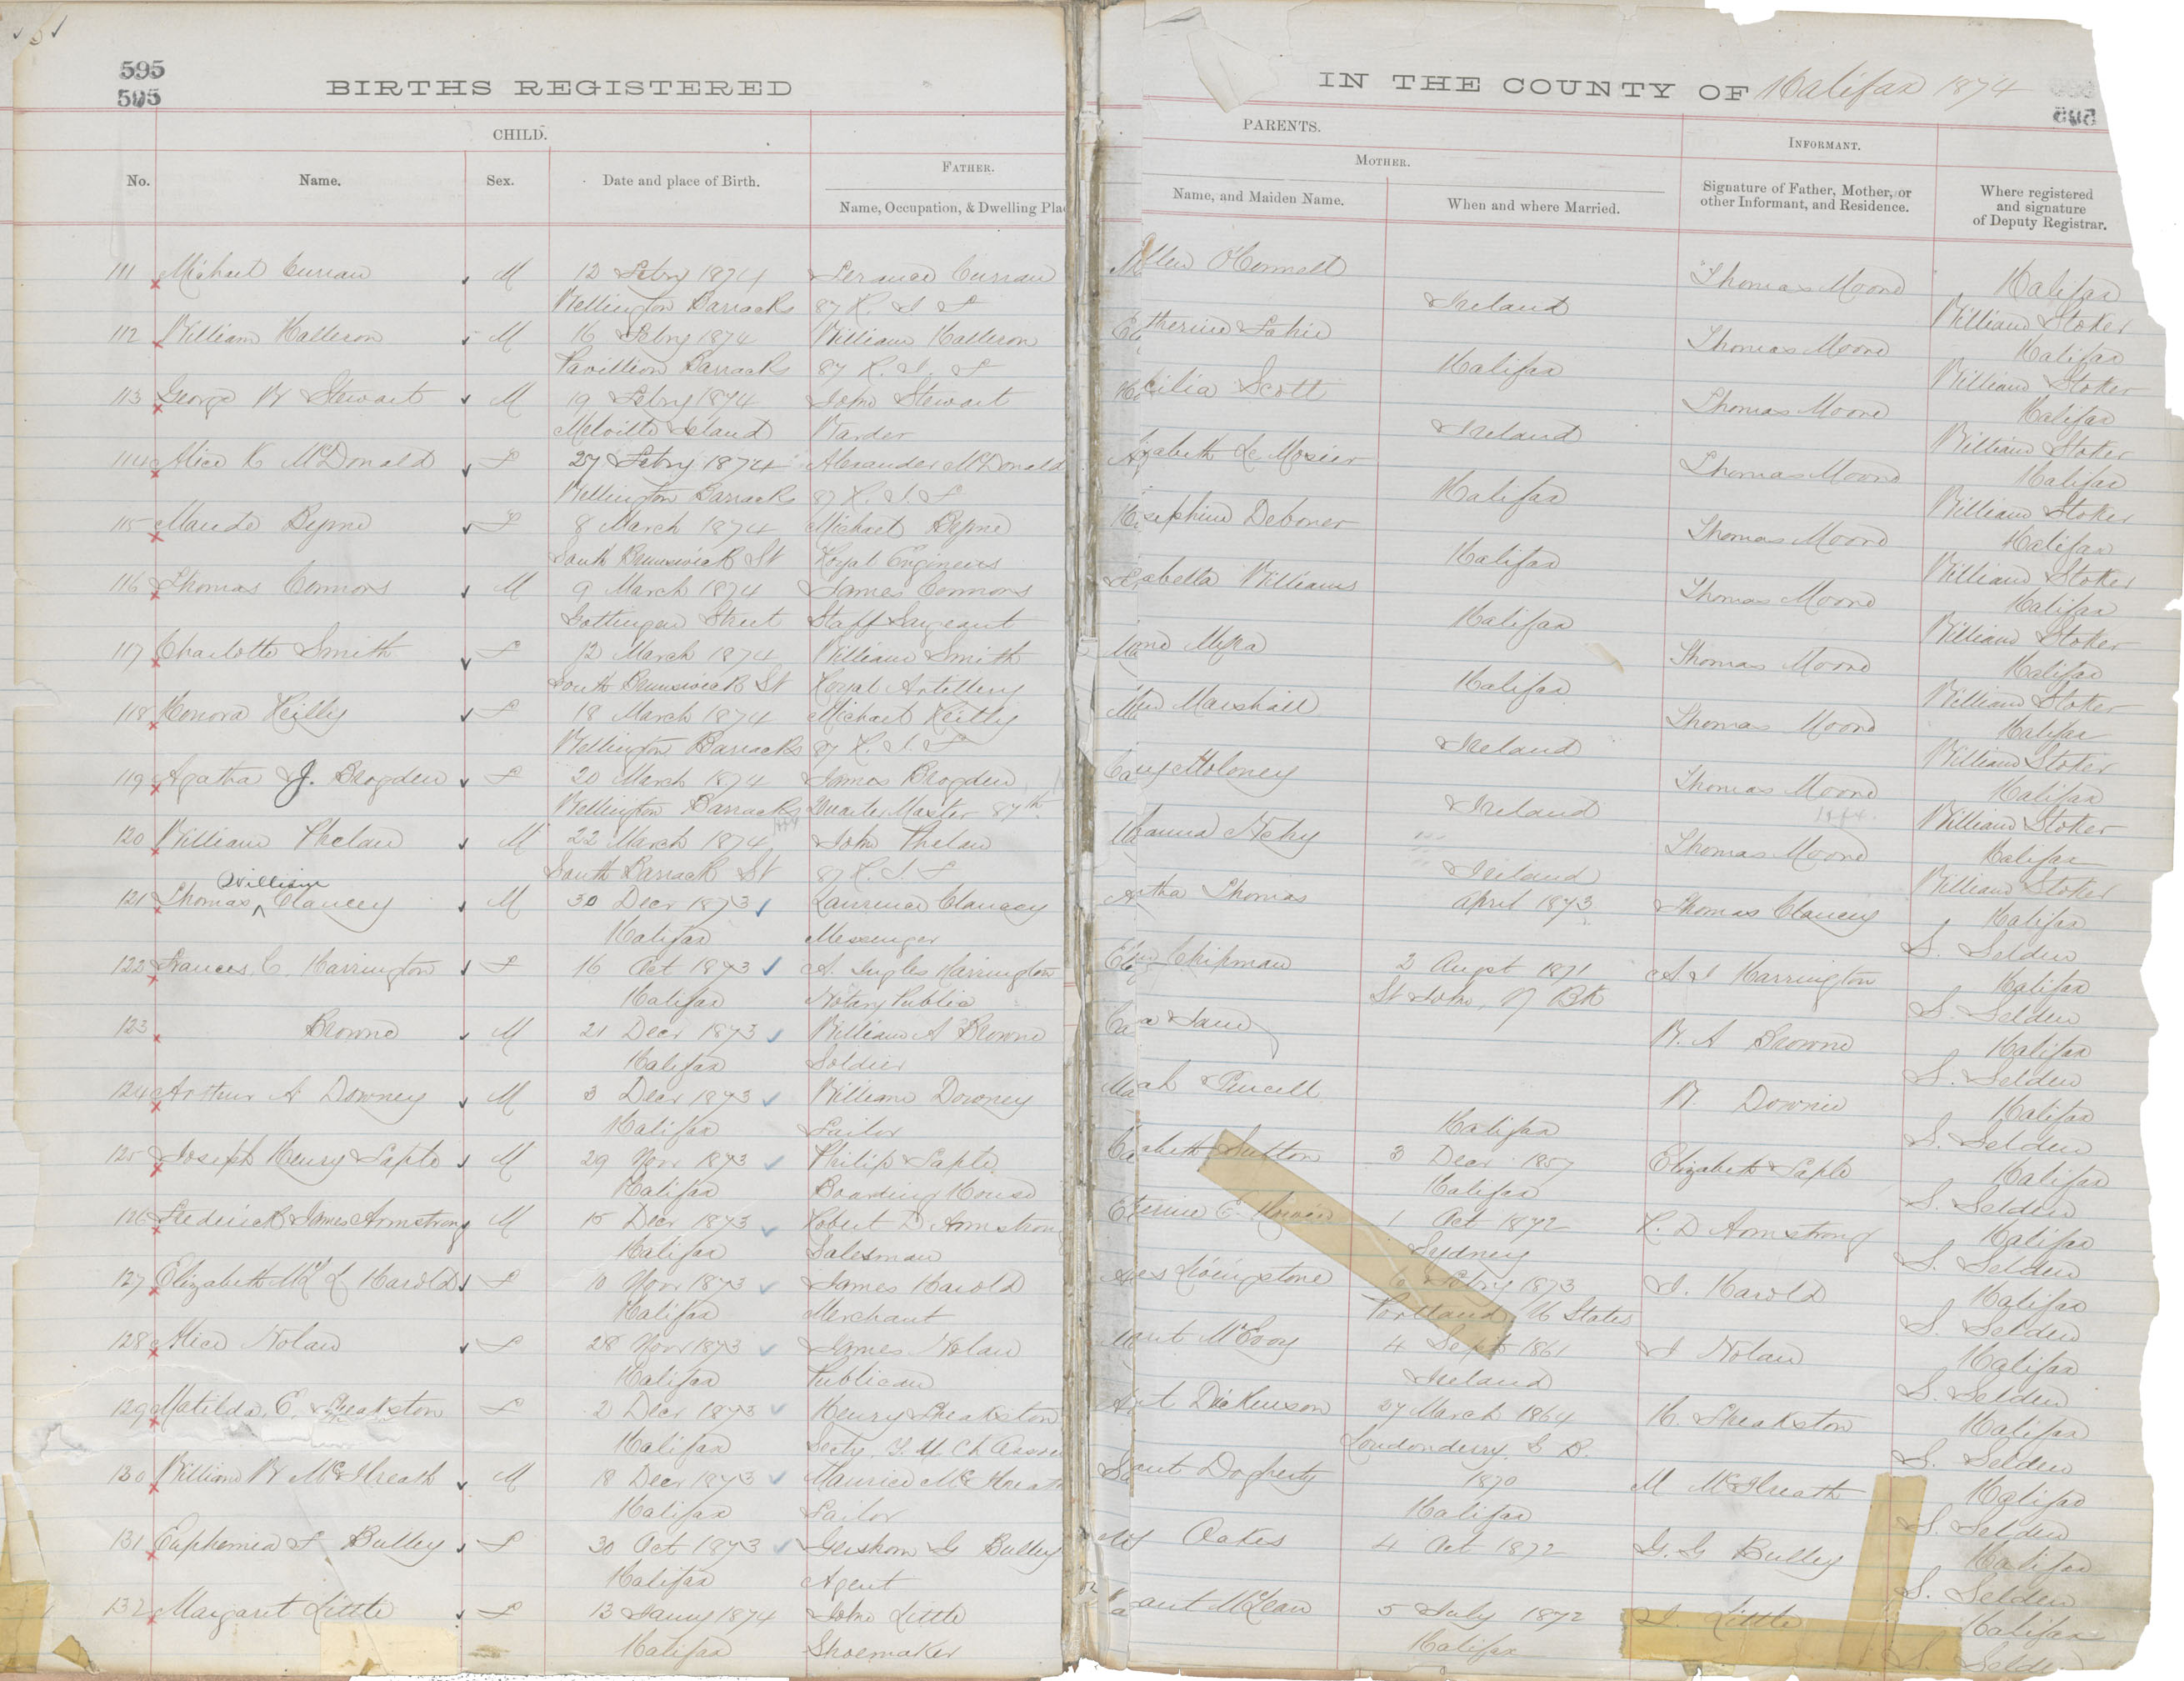 595
595
BIRTHS REGISTERED
IN THE COUNTY OF Halifax 1874
CHILD.
PARENTS.
INFORMANT.
FATHER.
MOTHER.
No.
Name.
Sex.
Date and place of Birth.
Name, Occupation, & Dwelling Pla
Name, and Maiden Name.
When and where Married.
Signature of Father, Mother, or other Informant, and Residence.
Where registered and signature of Deputy Registrar.
111 Michael Curran M 12 Febry 1874 Curran O'Connell Thomas Moore Halifax
Wellington Barracks 87 R. I. F Ireland William Stoker
112 William Halleron M 16 Febry 1874 William Halleron therine Thomas Moore Halifax
Pavillion Barracks 87 R. I. F Halifax William Stoker
113 George W Stewart M 19 Febry 1874 John Stewart cilia Scott Thomas Moore Halifax
Melville Island Warder Ireland William Stoker
114 Alice K McDonald F 27 Febry 1874 Alexander McDonald zabeth Le Mosier Thomas Moore Halifax
Wellington Barracks 87 R. I. F Halifax William Stoker
115 Maude Byrne F 8 March 1874 Michael Byrne sephine Deboner Thomas Moore Halifax
South Brunswick St Royal Engineers Halifax William Stoker
116 Thomas Connors M 9 March 1874 James Connors abella Williams Thomas Moore Halifax
Gottingen Street Staff Sargeant Halifax William Stoker
117 Charlotte Smith F 12 March 1874 William Smith Myra Thomas Moore Halifax
South Brunswick St Royal Artillery Halifax William Stoker
118 Honora Reilly F 18 March 1874 Michael Reilly Marshall Thomas Moore Halifax
Wellington Barracks 87 R. I. F Ireland William Stoker
119 Agatha J. Brogden F 20 March 1874 James Brogden Moloney Thomas Moore Halifax
Wellington Barracks Quarter Master 87th Ireland William Stoker
120 William Phelan M 22 March 1874 John Phelan hanna Thomas Moore Halifax
South Barrack St 87 R. I. F Ireland William Stoker
William
121 Thomas ^ Clancey M 30 Decr 1873 Laurence Clancey tha Thomas April 1873 Thomas Clancey Halifax
Halifax Messenger S. Selden
122 Frances C. Harrington F 16 Oct 1873 A. Ingles Harrington Chipman 2 Augst 1871 A I Harrington Halifax
Halifax Notary Public St John, N Bk S. Selden
123 Browne M 21 Decr 1873 William A Browne W. A Browne Halifax
Halifax Soldier S. Selden
124 Arthur A Downey M 3 Decr 1873 William Downey ah Purcell W. Downie Halifax
Halifax Sailor Halifax S. Selden
125 Joseph Henry Saple M 29 Novr 1873 Philip Saple abeth Sutton 3 Decr 1857 Elizabeth Saple Halifax
Halifax Boarding House Halifax S. Selden
126 Frederick James Armstrong M 15 Decr 1873 Robert D Armstrong erine E. 1 Oct 1872 R. D Armstrong Halifax
Halifax Salesman Sydney S. Selden
127 Elizabeth L Harold F 10 Novr 1873 James Harold es Livingstone 6 Febry 1873 J. Harold Halifax
Halifax Merchant Portland, U States S. Selden
128 Alice Nolan F 28 Novr 1873 James Nolan McEvoy 4 Sept 1861 J Nolan Halifax
Halifax Publican Ireland S. Selden
129 Matilda C. Theakston F 2 Decr 1873 Henry Theakston Dickenson 27 March 1864 H. Theakston Halifax
Halifax Secty. Y. M. Ch Londonderry S. Selden
130 William W McIlreath M 18 Decr 1873 Maurice McIlreath Dogherty 1870 M McIlreath Halifax
Halifax Tailor Halifax S. Selden
131 Euphemia F Bulley F 30 Oct 1873 Gershom G Bulley Oakes 4 Oct 1872 G. G Bulley Halifax
Halifax Agent S. Selden
132 Margaret Little F 13 Janry 1874 John Little McLean 5 July 1872 J. Little Halifax
Halifax Shoemaker Halifax S. Selde